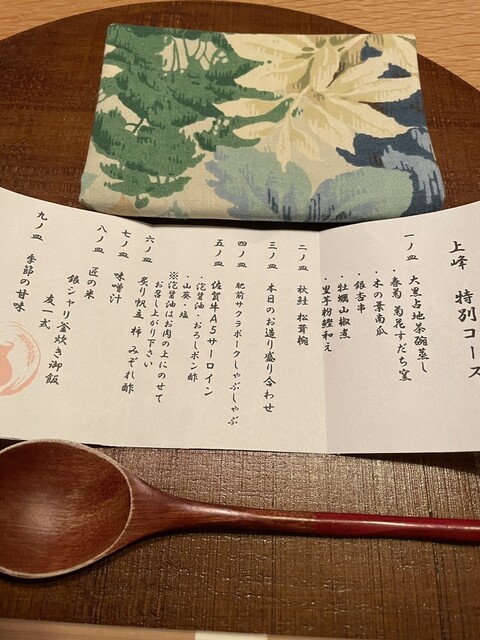 上峰 特別コース
一ノ皿
大黒占地茶碗蒸し
・春菊 菊花すだち窯
・木の葉南瓜
・銀杏串
・牡蠣山椒煮
・里芋粉鰹和え
二ノ皿
秋鮭 松茸椀
三ノ皿
本日のお造り盛り合わせ
四ノ皿
肥前サクラポークしゃぶしゃぶ
五ノ皿
佐賀牛A5サーロイン
・泡醤油・おろしポン酢
・山葵・塩
※泡醤油はお肉の上にのせて
お召し上がり下さい
六ノ皿
炙り帆立 柿 みぞれ酢
七ノ皿
味噌汁
八ノ皿
匠の米
銀シャリ釜炊き御飯
友一式
九ノ皿
季節の甘味